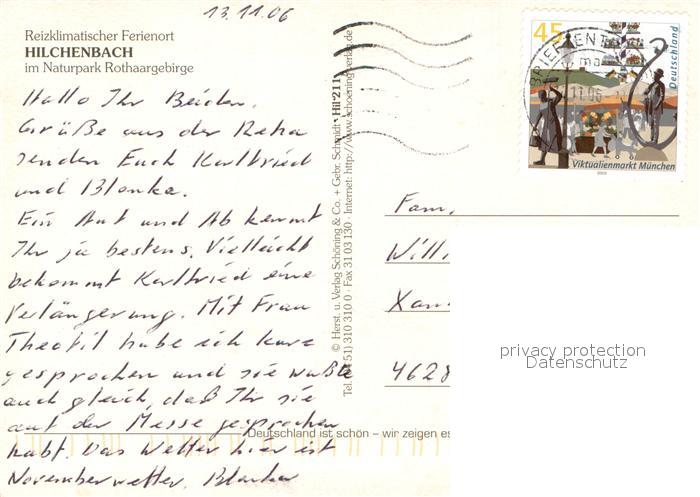 13.11.06
Reizklimatischer Ferienort
HILCHENBACH
im Naturpark Rothaargebirge
Hallo Ihr Beiden.
Grüße aus der Reha
senden Euch Karlfried
und Blanka.
Ein Auf und Ab kennt
Ihr ja bestens. Vielleicht
bekommt Karlfried eine
Verlängerung. Mit Frau
Theofil habe ich kurz
gesprochen und sie wußte
auch gleich, daß Ihr sie
auf der Messe gesprochen
habt. Das Wetter hier ist
Novemberwetter. Blanka
© Herst. u. Verlag Schöning & Co. + Gebr. Schmidt • Hil 211
Tel. (04 51) 310 310 0 · Fax 31 03 130 · Internet: http://www.schoeningverlag.de
Deutschland ist schön – wir zeigen es
45
Deutschland
Viktualienmarkt München
2003
BRIEFZENT
11.06
Fam.
Willi
Xan
4628
privacy protection
Datenschutz